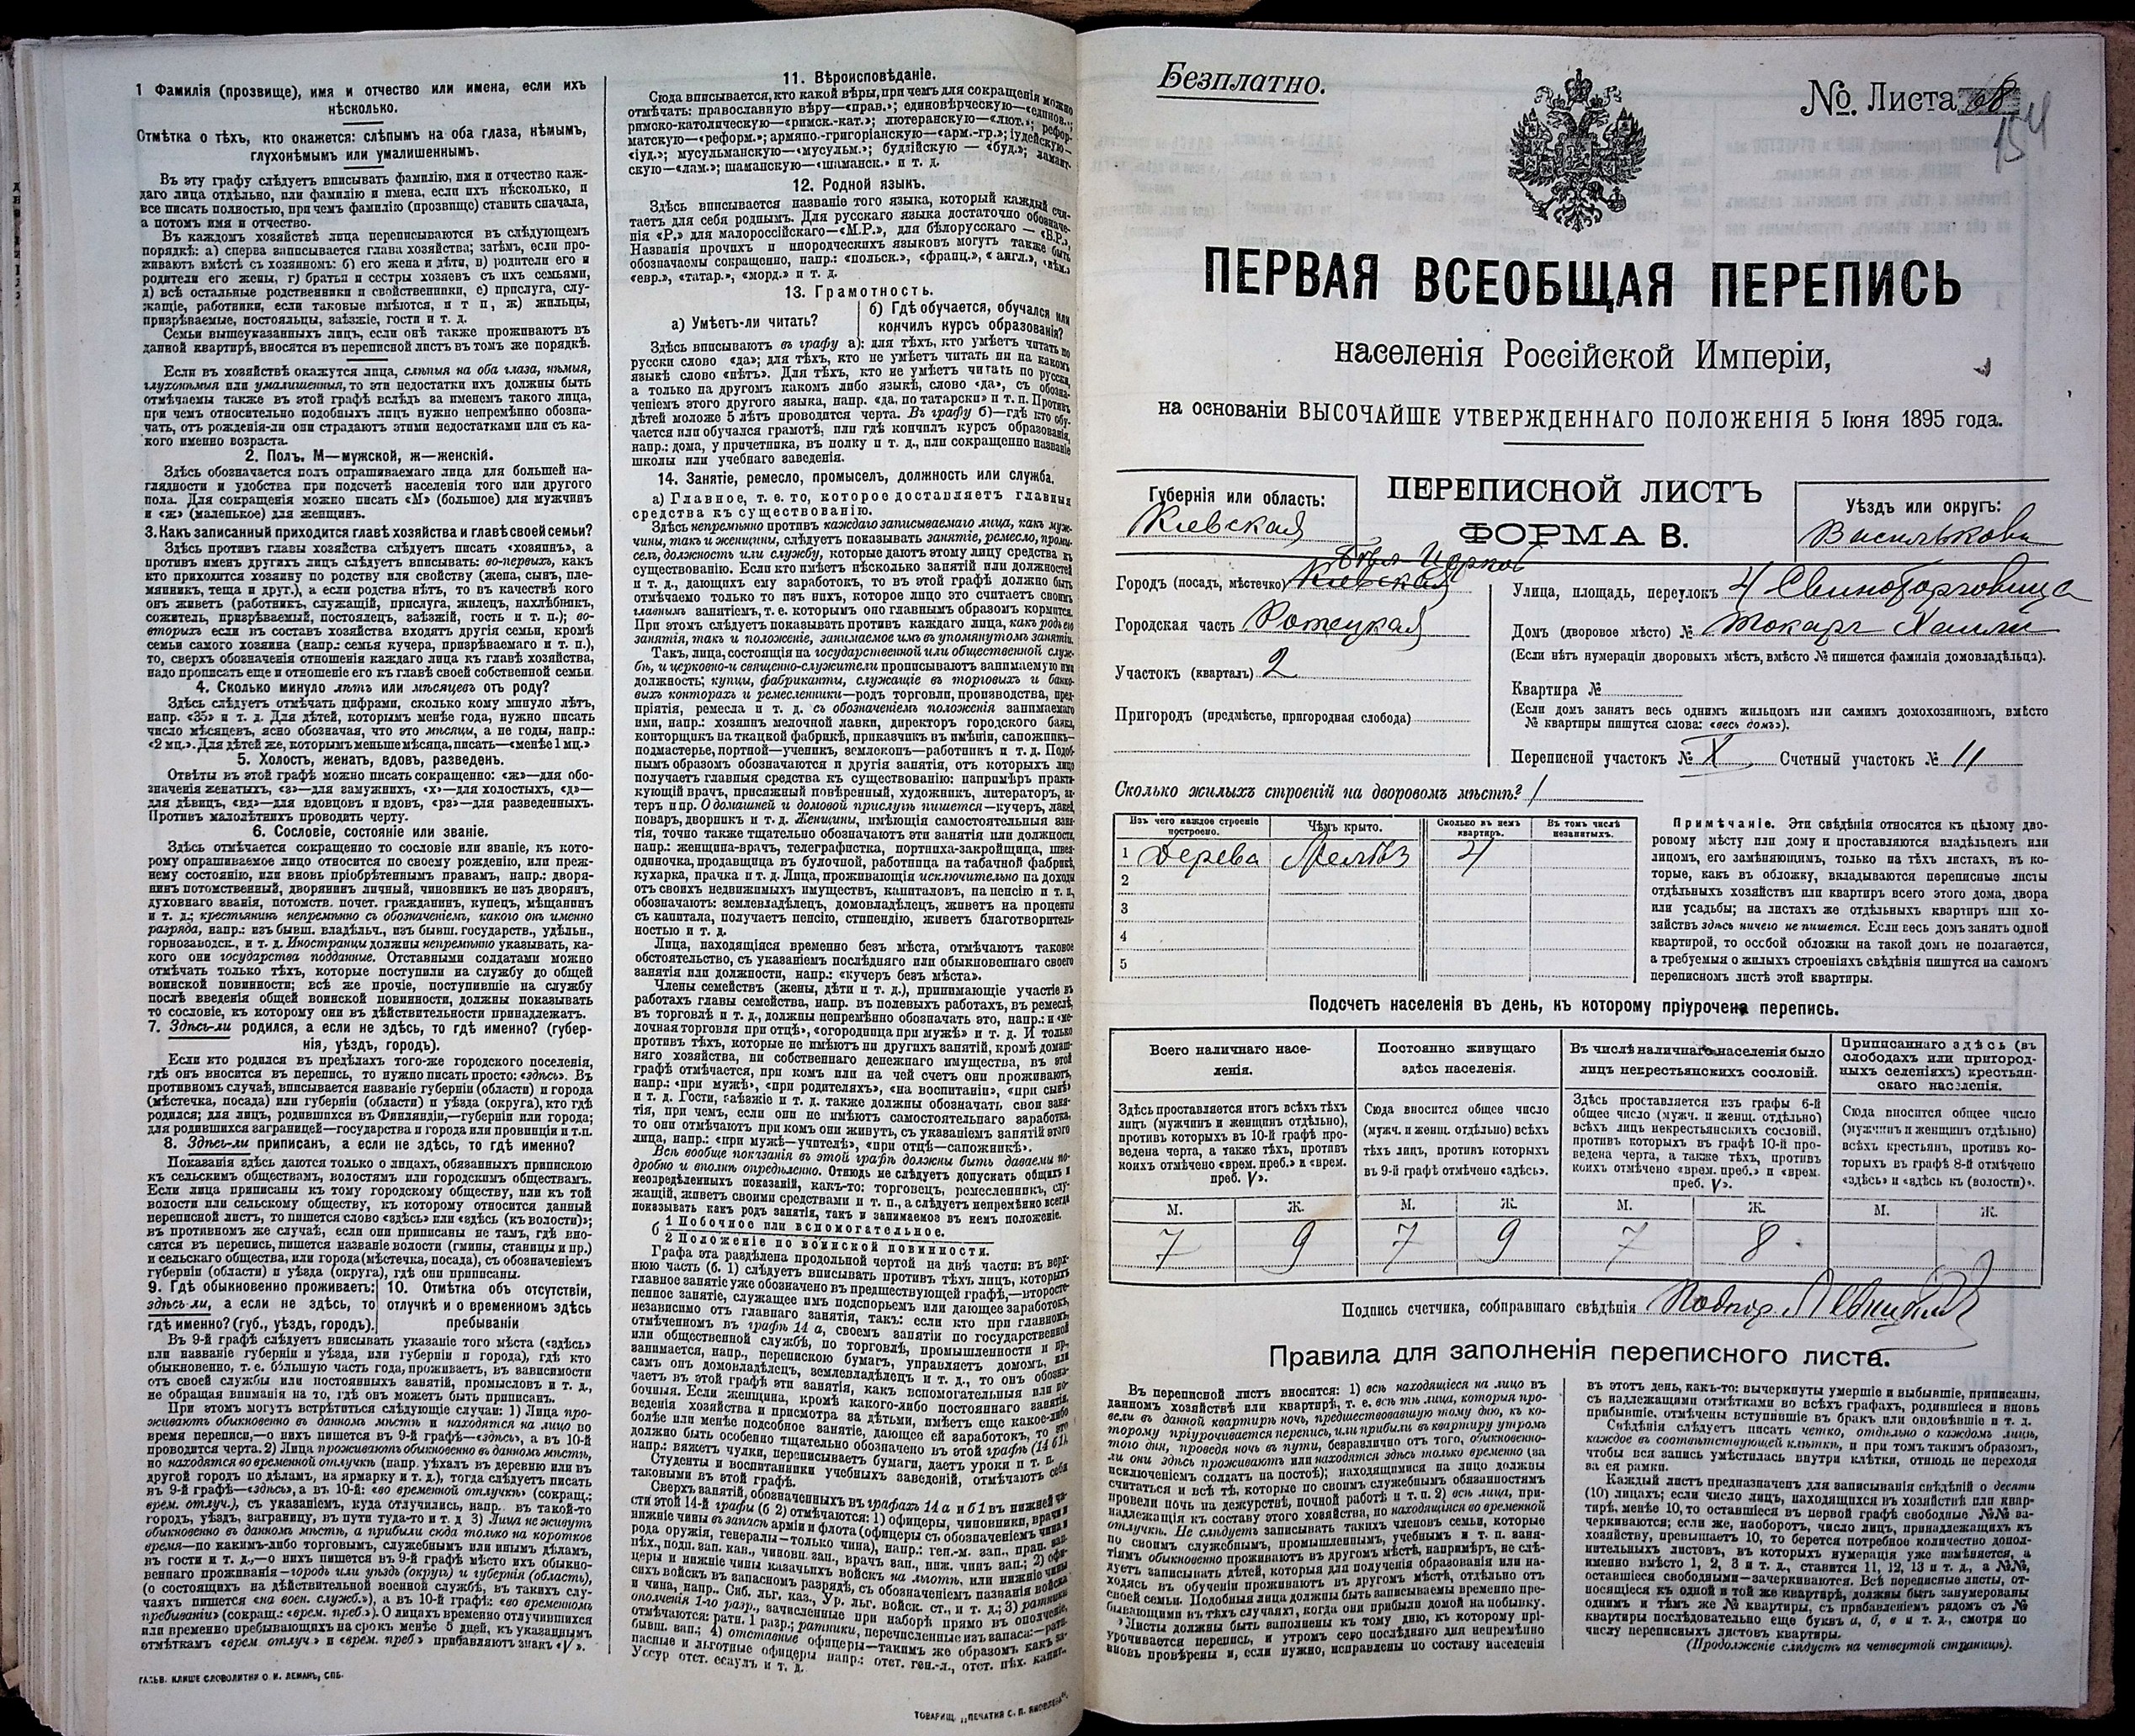 1 Фамилія (прозвище), имя и отчество или имена, если ихъ
нѣсколько.
Отмѣтка о тѣхъ, кто окажется: слѣпымъ на оба глаза, нѣмымъ,
глухонѣмымъ или умалишеннымъ.
Въ эту графу слѣдуетъ вписывать фамилію, имя и отчество каж-
даго лица отдѣльно, или фамилію и имена, если ихъ нѣсколько, и
все писать полностью, при чемъ фамилію (прозвище) ставить сначала,
а потомъ имя и отчество.
Въ каждомъ хозяйствѣ лица переписываются въ слѣдующемъ
порядкѣ: а) сперва записывается глава хозяйства; затѣмъ, если про-
живаютъ вмѣстѣ съ хозяиномъ: б) его жена и дѣти, в) родители его и
родители его жены, г) братья и сестры хозяевъ съ ихъ семьями,
д) всѣ остальные родственники и свойственники, е) прислуга, слу-
жащіе, работники, если таковые имѣются, и т п, ж) жильцы,
призрѣваемые, постояльцы, заѣзжіе, гости и т. д.
Семьи вышеуказанныхъ лицъ, если онѣ также проживаютъ въ
данной квартирѣ, вносятся въ переписной листъ въ томъ же порядкѣ.
Если въ хозяйствѣ окажутся лица, слѣпыя на оба глаза, нѣмыя,
глухонѣмыя или умалишенныя, то эти недостатки ихъ должны быть
отмѣчаемы также въ этой графѣ вслѣдъ за именемъ такого лица,
при чемъ относительно подобныхъ лицъ нужно непремѣнно обозна-
чать, отъ рожденія-ли они страдаютъ этими недостатками или съ ка-
кого именно возраста.
2. Полъ. М—мужской, ж—женскій.
Здѣсь обозначается полъ опрашиваемаго лица для большей на-
глядности и удобства при подсчетѣ населенія того или другого
пола. Для сокращенія можно писать «М» (большое) для мужчинъ
и «ж» (маленькое) для женщинъ.
3. Какъ записанный приходится главѣ хозяйства и главѣ своей семьи?
Здѣсь противъ главы хозяйства слѣдуетъ писать «хозяинъ», а
противъ именъ другихъ лицъ слѣдуетъ вписывать: во-первыхъ, какъ
кто приходится хозяину по родству или свойству (жена, сынъ, пле-
мянникъ, теща и друг.), а если родства нѣтъ, то въ качествѣ кого
онъ живетъ (работникъ, служащій, прислуга, жилецъ, нахлѣбникъ,
сожитель, призрѣваемый, постоялецъ, заѣзжій, гость и т. п.); во-
вторыхъ если въ составъ хозяйства входятъ другія семьи, кромѣ
семьи самого хозяина (напр.: семья кучера, призрѣваемаго и т. п.),
то, сверхъ обозначенія отношенія каждаго лица къ главѣ хозяйства,
надо прописать еще и отношеніе его къ главѣ своей собственной семьи.
4. Сколько минуло лѣтъ или мѣсяцевъ отъ роду?
Здѣсь слѣдуетъ отмѣчать цифрами, сколько кому минуло лѣтъ,
напр. «35» и т. д. Для дѣтей, которымъ менѣе года, нужно писать
число мѣсяцевъ, ясно обозначая, что это мѣсяцы, а не годы, напр.:
«2 мц.». Для дѣтей же, которымъ меньше мѣсяца, писать—«менѣе 1 мц.»
5. Холостъ, женатъ, вдовъ, разведенъ.
Отвѣты въ этой графѣ можно писать сокращенно: «ж»—для обо-
значенія женатыхъ, «з»—для замужнихъ, «х»—для холостыхъ, «д»—
для дѣвицъ, «вд»—для вдовцовъ и вдовъ, «рз»—для разведенныхъ.
Противъ малолѣтнихъ проводить черту.
6. Сословіе, состояніе или званіе.
Здѣсь отмѣчается сокращенно то сословіе или званіе, къ кото-
рому опрашиваемое лицо относится по своему рожденію, или преж-
нему состоянію, или вновь пріобрѣтеннымъ правамъ, напр.: дворя-
нинъ потомственный, дворянинъ личный, чиновникъ не изъ дворянъ,
духовнаго званія, потомств. почет. гражданинъ, купецъ, мѣщанинъ
и т. д.; крестьянинъ непремѣнно съ обозначеніемъ, какого онъ именно
разряда, напр.: изъ бывш. владѣльч., изъ бывш. государств., удѣльн.,
горнозаводск., и т. д. Иностранцы должны непремѣнно указывать, ка-
кого они государства подданные. Отставными солдатами можно
отмѣчать только тѣхъ, которые поступили на службу до общей
воинской повинности; всѣ же прочіе, поступившіе на службу
послѣ введенія общей воинской повинности, должны показывать
то сословіе, къ которому они въ дѣйствительности принадлежатъ.
7. Здѣсь-ли родился, а если не здѣсь, то гдѣ именно? (губер-
нія, уѣздъ, городъ).
Если кто родился въ предѣлахъ того-же городского поселенія,
гдѣ онъ вносится въ перепись, то нужно писать просто: «здѣсь». Въ
противномъ случаѣ, вписывается названіе губерніи (области) и города
(мѣстечка, посада) или губерніи (области) и уѣзда (округа), кто гдѣ
родился; для лицъ, родившихся въ Финляндіи,—губерніи или города;
для родившихся заграницей—государства и города или провинціи и т.п.
8. Здѣсь-ли приписанъ, а если не здѣсь, то гдѣ именно?
Показанія здѣсь даются только о лицахъ, обязанныхъ припискою
къ сельскимъ обществамъ, волостямъ или городскимъ обществамъ.
Если лица приписаны къ тому городскому обществу, или къ той
волости или сельскому обществу, къ которому относится данный
переписной листъ, то пишется слово «здѣсь» или «здѣсь (къ волости)»;
въ противномъ же случаѣ, если они приписаны не тамъ, гдѣ вно-
сятся въ перепись, пишется названіе волости (гмины, станицы и пр.)
и сельскаго общества, или города (мѣстечка, посада), съ обозначеніемъ
губерніи (области) и уѣзда (округа), гдѣ они приписаны.
9. Гдѣ обыкновенно проживаетъ:
здѣсь-ли, а если не здѣсь, то
гдѣ именно? (губ., уѣздъ, городъ).
10. Отмѣтка объ отсутствіи,
отлучкѣ и о временномъ здѣсь
пребываніи
Въ 9-й графѣ слѣдуетъ вписывать указаніе того мѣста («здѣсь»
или названіе губерніи и уѣзда, или губерніи и города), гдѣ кто
обыкновенно, т. е. бо́льшую часть года, проживаетъ, въ зависимости
отъ своей службы или постоянныхъ занятій, промысловъ и т. д.,
не обращая вниманія на то, гдѣ онъ можетъ быть приписанъ.
При этомъ могутъ встрѣтиться слѣдующіе случаи: 1) Лица про-
живаютъ обыкновенно въ данномъ мѣстѣ и находятся на лицо во
время переписи,—о нихъ пишется въ 9-й графѣ—«здѣсь», а въ 10-й
проводится черта. 2) Лица проживаютъ обыкновенно въ данномъ мѣстѣ,
но находятся во временной отлучкѣ (напр. уѣхалъ въ деревню или въ
другой городъ по дѣламъ, на ярмарку и т. д.), тогда слѣдуетъ писать
въ 9-й графѣ—«здѣсь», а въ 10-й: «во временной отлучкѣ» (сокращ.:
врем. отлуч.), съ указаніемъ, куда отлучились, напр. въ такой-то
городъ, уѣздъ, заграницу, въ пути туда-то и т. д 3) Лица не живутъ
обыкновенно въ данномъ мѣстѣ, а прибыли сюда только на короткое
время—по какимъ-либо торговымъ, служебнымъ или инымъ дѣламъ,
въ гости и т. д.,—о нихъ пишется въ 9-й графѣ мѣсто ихъ обыкно-
веннаго проживанія—городъ или уѣздъ (округъ) и губернія (область),
(о состоящихъ на дѣйствительной военной службѣ, въ такихъ слу-
чаяхъ пишется «на воен. служб.»), а въ 10-й графѣ: «во временномъ
пребываніи» (сокращ.: «врем. преб.»). О лицахъ временно отлучившихся
или временно пребывающихъ на срокъ менѣе 5 дней, къ указаннымъ
отмѣткамъ «врем. отлуч.» и «врем. преб.» прибавляютъ знакъ «V».
ГАЛЬВ. КЛИШЕ СЛОВОЛИТНИ О. И. ЛЕМАНЪ, СПБ.
11. Вѣроисповѣданіе.
Сюда вписывается, кто какой вѣры, при чемъ для сокращенія можно
отмѣчать: православную вѣру—«прав.»; единовѣрческую—«единов.»;
римско-католическую—«римск.-кат.»; лютеранскую—«лют.»; рефор-
матскую—«реформ.»; армяно.-григоріанскую—«арм.-гр.»; іудейскую—
«іуд.»; мусульманскую—«мусульм.»; буддійскую — «буд.»; ламаит-
скую—«лам.»; шаманскую—«шаманск.» и т. д.
12. Родной языкъ.
Здѣсь вписывается названіе того языка, который каждый счи-
таетъ для себя роднымъ. Для русскаго языка достаточно обозначе-
нія «Р.» для малороссійскаго—«М.Р.», для бѣлорусскаго — «Б.Р.»,
Названія прочихъ и инородческихъ языковъ могутъ также быть
обозначаемы сокращенно, напр.: «польск.», «франц.», «англ.», «нѣм.»
«евр.», «татар.», «морд.» и т. д.
13. Грамотность.
а) Умѣетъ-ли читать?
б) Гдѣ обучается, обучался или
кончилъ курсъ образованія?
Здѣсь вписываютъ въ графу а): для тѣхъ, кто умѣетъ читать по
русски слово «да»; для тѣхъ, кто не умѣетъ читать ни на какомъ
языкѣ слово «нѣтъ». Для тѣхъ, кто не умѣетъ читать по русски,
а только на другомъ какомъ либо языкѣ, слово «да», съ обозна-
ченіемъ этого другого языка, напр. «да, по татарски» и т. п. Противъ
дѣтей моложе 5 лѣтъ проводится черта. Въ графу б)—гдѣ кто обу-
чается или обучался грамотѣ, или гдѣ кончилъ курсъ образованія,
напр.: дома, у причетника, въ полку и т. д., или сокращенно названіе
школы или учебнаго заведенія.
14. Занятіе, ремесло, промыселъ, должность или служба.
а) Главное, т. е. то, которое доставляетъ главныя
средства къ существованію.
Здѣсь непремѣнно противъ каждаго записываемаго лица, какъ муж-
чины, такъ и женщины, слѣдуетъ показывать занятіе, ремесло, промы-
селъ, должность или службу, которые даютъ этому лицу средства къ
существованію. Если кто имѣетъ нѣсколько занятій или должностей
и т. д., дающихъ ему заработокъ, то въ этой графѣ должно быть
отмѣчаемо только то изъ нихъ, которое лицо это считаетъ своимъ
главнымъ занятіемъ, т. е. которымъ оно главнымъ образомъ кормится.
При этомъ слѣдуетъ показывать противъ каждаго лица, какъ родъ его
занятія, такъ и положеніе, занимаемое имъ въ упомянутомъ занятіи.
Такъ, лица, состоящія на государственной или общественной служ-
бѣ, и церковно-и священно-служители прописываютъ занимаемую ими
должность; купцы, фабриканты, служащіе въ торговыхъ и банко-
выхъ конторахъ и ремесленники—родъ торговли, производства, пред-
пріятія, ремесла и т. д. съ обозначеніемъ положенія занимаемаго
ими, напр.: хозяинъ мелочной лавки, директоръ городского банка,
конторщикъ на ткацкой фабрикѣ, приказчикъ въ имѣніи, сапожникъ—
подмастерье, портной—ученикъ, землекопъ—работникъ и т. д. Подоб-
нымъ образомъ обозначаются и другія занятія, отъ которыхъ лицо
получаетъ главныя средства къ существованію: напримѣръ практи-
кующій врачъ, присяжный повѣренный, художникъ, литераторъ, ак-
теръ и пр. О домашней и домовой прислугѣ пишется—кучеръ, лакей,
поваръ, дворникъ и т. д. Женщины, имѣющія самостоятельныя заня-
тія, точно также тщательно обозначаютъ эти занятія или должности,
напр.: женщина-врачъ, телеграфистка, портниха-закройщица, швея-
одиночка, продавщица въ булочной, работница на табачной фабрикѣ,
кухарка, прачка и т. д. Лица, проживающія исключительно на доходы
отъ своихъ недвижимыхъ имуществъ, капиталовъ, на пенсію и т. п,
обозначаютъ: землевладѣлецъ, домовладѣлецъ, живетъ на проценты
съ капитала, получаетъ пенсію, стипендію, живетъ благотворитель-
ностью и т. д.
Лица, находящіяся временно безъ мѣста, отмѣчаютъ таковое
обстоятельство, съ указаніемъ послѣдняго или обыкновеннаго своего
занятія или должности, напр.: «кучеръ безъ мѣста».
Члены семействъ (жены, дѣти и т. д.), принимающіе участіе въ
работахъ главы семейства, напр. въ полевыхъ работахъ, въ ремеслѣ,
въ торговлѣ и т. д., должны непремѣнно обозначать это, напр.: «ме-
лочная торговля при отцѣ», «огородница при мужѣ» и т. д. И только
противъ тѣхъ, которые не имѣютъ ни другихъ занятій, кромѣ домаш-
няго хозяйства, ни собственнаго денежнаго имущества, въ этой
графѣ отмѣчается, при комъ или на чей счетъ они проживаютъ,
напр.: «при мужѣ», «при родителяхъ», «на воспитаніи», «при сынѣ»
и т. д. Гости, заѣзжіе и т. д. также должны обозначать свои заня-
тія, при чемъ, если они не имѣютъ самостоятельнаго заработка,
то они отмѣчаютъ при комъ они живутъ, съ указаніемъ занятій этого
лица, напр.: «при мужѣ—учителѣ», «при отцѣ—сапожникѣ».
Всѣ вообще показанія въ этой графѣ должны быть даваемы по-
дробно и вполнѣ опредѣленно. Отнюдь не слѣдуетъ допускать общихъ и
неопредѣленныхъ показаній, какъ-то: торговецъ, ремесленникъ, слу-
жащій, живетъ своими средствами и т. п., а слѣдуетъ непремѣнно всегда
показывать какъ родъ занятія, такъ и занимаемое въ немъ положеніе.
б 1 Побочное или вспомогательное.
2 Положеніе по воинской повинности.
Графа эта раздѣлена продольной чертой на двѣ части: въ верх-
нюю часть (б. 1) слѣдуетъ вписывать противъ тѣхъ лицъ, которыхъ
главное занятіе уже обозначено въ предшествующей графѣ,—второсте-
пенное занятіе, служащее имъ подспорьемъ или дающее заработокъ,
независимо отъ главнаго занятія, такъ: если кто при главномъ,
отмѣченномъ въ графѣ 14 а, своемъ занятіи по государственной
или общественной службѣ, по торговлѣ, промышленности и пр.,
занимается, напр., перепискою бумагъ, управляетъ домомъ, или
самъ онъ домовладѣлецъ, землевладѣлецъ и т. д., то онъ обозна-
чаетъ въ этой графѣ эти занятія, какъ вспомогательныя или по-
бочныя. Если женщина, кромѣ какого-либо постояннаго занятія,
веденія хозяйства и присмотра за дѣтьми, имѣетъ еще какое-либо
болѣе или менѣе подобное занятіе, дающее ей заработокъ, то это
должно быть особенно тщательно обозначено въ этой графѣ (14 б1),
напр.: вяжетъ чулки, переписываетъ бумаги, даетъ уроки и т. п.
Студенты и воспитанники учебныхъ заведеній, отмѣчаютъ себя
таковыми въ этой графѣ.
Сверхъ занятій, обозначенныхъ въ графахъ 14 а и б1 въ нижней ча-
сти этой 14-й графи (б 2) отмѣчаются: 1) офицеры, чиновники, врачи и
нижніе чины въ запасѣ арміи и флота (офицеры съ обозначеніемъ чина и
рода оружія, генералы—только чина), напр.: ген-м. зап., прап. зап.
пѣх., подп. зап. кав., чиновн. зап., врачъ зап., ниж. чинъ зап.; 2) офи-
церы и нижніе чины казачьихъ войскъ на льготѣ, или нижніе чины
сихъ войскъ въ запасномъ разрядѣ, съ обозначеніемъ названія войска
и чина, напр., Сиб. льг. каз., Ур. льг. войск. ст., и т. д.; 3) ратники
ополченія 1-го разр., зачисленные при наборѣ прямо въ ополченіе,
отмѣчаются: ратн. 1 разр.; ратники, перечисленные изъ запаса:—ратн.
бывш. зап.; 4) отставные офицеры—такимъ же образомъ какъ за-
пасные и льготные офицеры напр.: отст. ген.-л., отст. пѣх. капит.,
Уссур отст. есаулъ и т. д.
ТОВАРИЩ. „ПЕЧАТНЯ С. П. ЯКОВЛЕВА“.
Безплатно.
№ Листа 68
154
ПЕРВАЯ ВСЕОБЩАЯ ПЕРЕПИСЬ
населенія Россійской Имперіи,
на основаніи ВЫСОЧАЙШЕ УТВЕРЖДЕННАГО ПОЛОЖЕНІЯ 5 Іюня 1895 года.
Губернія или область:
Кіевская
ПЕРЕПИСНОЙ ЛИСТЪ
ФОРМА В.
Уѣздъ или округъ:
Васильковс
Бѣл Церков
Городъ (посадъ, мѣстечко) Кіевская
Городская часть Ротецкая
Участокъ (кварталъ) 2
Пригородъ (предмѣстье, пригородная слобода)
Улица, площадь, переулокъ 4 Свиноторговица
Домъ (дворовое мѣсто) № Токарь
(Если нѣтъ нумераціи дворовыхъ мѣстъ, вмѣсто № пишется фамилія домовладѣльца).
Квартира №
(Если домъ занятъ весь однимъ жильцомъ или самимъ домохозяиномъ, вмѣсто
№ квартиры пишутся слова: «весь домъ»).
Переписной участокъ № X Счетный участокъ № 11
Сколько жилыхъ строеній на дворовомъ мѣстѣ? 1
Изъ чего каждое строеніе построено.
Чѣмъ крыто.
Сколько въ немъ квартиръ.
Въ томъ числѣ незанятыхъ.
1 Дерева Желѣз 4
2
3
4
5
Примѣчаніе. Эти свѣдѣнія относятся къ цѣлому дво-
ровому мѣсту или дому и проставляются владѣльцемъ или
лицомъ, его замѣняющимъ, только на тѣхъ листахъ, въ ко-
торые, какъ въ обложку, вкладываются переписные листы
отдѣльныхъ хозяйствъ или квартиръ всего этого дома, двора
или усадьбы; на листахъ же отдѣльныхъ квартиръ или хо-
зяйствъ здѣсь ничего не пишется. Если весь домъ занятъ одной
квартирой, то особой обложки на такой домъ не полагается,
а требуемыя о жилыхъ строеніяхъ свѣдѣнія пишутся на самомъ
переписномъ листѣ этой квартиры.
Подсчетъ населенія въ день, къ которому пріурочена перепись.
Всего наличнаго насе-
ленія.
Постоянно живущаго
здѣсь населенія.
Въ числѣ наличнаго населенія было
лицъ некрестьянскихъ сословій.
Приписаннаго здѣсь (въ
слободахъ или пригород-
ныхъ селеніяхъ) крестьян-
скаго населенія.
Здѣсь проставляется итогъ всѣхъ тѣхъ
лицъ (мужчинъ и женщинъ отдѣльно),
противъ которыхъ въ 10-й графѣ про-
ведена черта, а также тѣхъ, противъ
коихъ отмѣчено «врем. преб.» и «врем.
преб. V».
Сюда вносится общее число
(мужч. и женщ. отдѣльно) всѣхъ
тѣхъ лицъ, противъ которыхъ
въ 9-й графѣ отмѣчено «здѣсь».
Здѣсь проставляется изъ графы 6-й
общее число (мужч. и женщ. отдѣльно)
всѣхъ лицъ некрестьянскихъ сословій.
противъ которыхъ въ графѣ 10-й про-
ведена черта, а также тѣхъ, противъ
коихъ отмѣчено «врем. преб.» и «врем.
преб. V».
Сюда вносится общее число
(мужчинъ и женщинъ отдѣльно)
всѣхъ крестьянъ, противъ ко-
торыхъ въ графѣ 8-й отмѣчено
«здѣсь» и «здѣсь къ (волости)».
М. Ж. М. Ж. М. Ж. М. Ж.
7 9 7 9 7 8
Подпись счетчика, собиравшаго свѣдѣнія Подпор.
Правила для заполненія переписного листа.
Въ переписной листъ вносятся: 1) всѣ находящіеся на лицо въ
данномъ хозяйствѣ или квартирѣ, т. е. всѣ тѣ лица, которыя про-
вели въ данной квартирѣ ночь, предшествовавшую тому дню, къ ко-
торому пріурочивается перепись, или прибыли въ квартиру утромъ
того дня, проведя ночь въ пути, безразлично отъ того, обыкновенно-
ли они здѣсь проживаютъ или находятся здѣсь только временно (за
исключеніемъ солдатъ на постоѣ); находящимися на лицо должны
считаться и всѣ тѣ, которые по своимъ служебнымъ обязанностямъ
провели ночь на дежурствѣ, ночной работѣ и т. п. 2) всѣ лица, при-
надлежащія къ составу этого хозяйства, но находящіеся во временной
отлучкѣ. Не слѣдуетъ записывать такихъ членовъ семьи, которые
по своимъ служебнымъ, промышленнымъ, учебнымъ и т. п. заня-
тіямъ обыкновенно проживаютъ въ другомъ мѣстѣ, напримѣръ, не слѣ-
дуетъ записывать дѣтей, которыя для полученія образованія или на-
ходясь въ обученіи проживаютъ въ другомъ мѣстѣ, отдѣльно отъ
своей семьи. Подобныя лица должны быть записываемы временно пре-
бывающими въ тѣхъ случаяхъ, когда они прибыли домой на побывку.
Листы должны быть выполнены къ тому дню, къ которому прі-
урочивается перепись, и утромъ сего послѣдняго дня непремѣнно
вновь провѣрены и, если нужно, исправлены по составу населенія
въ этотъ день, какъ-то: вычеркнуты умершіе и выбывшіе, приписаны,
съ надлежащими отмѣтками во всѣхъ графахъ, родившіеся и вновь
прибывшіе, отмѣчены вступившіе въ бракъ или овдовѣвшіе и т. д.
Свѣдѣнія слѣдуетъ писать четко, отдѣльно о каждомъ лицѣ,
каждое въ соотвѣтствующей клѣткѣ, и при томъ такимъ образомъ,
чтобы вся запись умѣстилась внутри клѣтки, отнюдь не переходя
за ея рамки.
Каждый листъ предназначенъ для записыванія свѣдѣній о десяти
(10) лицахъ; если число лицъ, находящихся въ хозяйствѣ или квар-
тирѣ, менѣе 10, то оставшіеся въ первой графѣ свободные №№ за-
черкиваются; если же, наоборотъ, число лицъ, принадлежащихъ къ
хозяйству, превышаетъ 10, то берется потребное количество допол-
нительныхъ листовъ, въ которыхъ нумерація уже измѣняется, а
именно вмѣсто 1, 2, 3 и т. д., ставится 11, 12, 13 и т. д., а №№,
оставшіеся свободными—зачеркиваются. Всѣ переписные листы, от-
носящіеся къ одной и той же квартирѣ, должны быть занумерованы
однимъ и тѣмъ же № квартиры, съ прибавленіемъ рядомъ съ №
квартиры послѣдовательно еще буквъ а, б, в и т. д., смотря по
числу переписныхъ листовъ квартиры.
(Продолженіе слѣдуетъ на четвертой страницѣ).